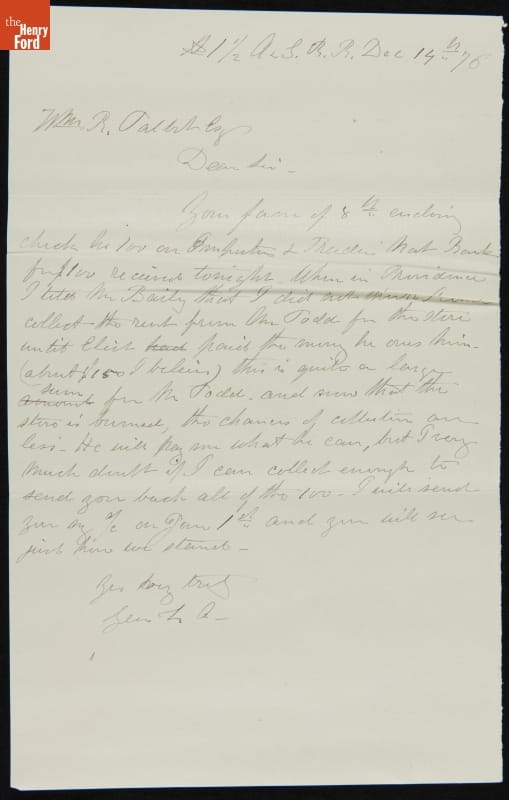 the
Henry
Ford
At 1 1/2 A & G. R. R. Dec 14th 76
Wm R. Talbot Esq
Dear Sir -
Your favor of 8th enclosing
check No 100 on Importers & Traders Nat Bank
for $100 received tonight. When in Providence
I told Mr Baily that I did not
collect the rent from Mr Todd for the store
until Elict had paid the money he owes him -
(about $150 I believe) this is quite a large
sum
amount for Mr Todd - and now that the
store is burned, the chances of collection are
less - He will pay me what he can, but I very
much doubt if I can collect enough to
send you back all of the 100 - I will send
you my a/c on Jany 1st and you will see
just how we stand -
Yrs very truly
Geo L A -